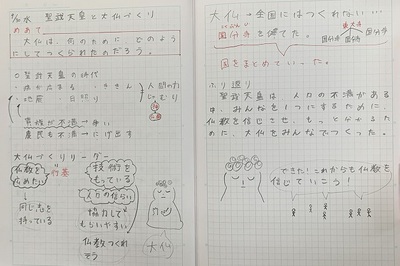 9/20 水 聖武天皇と大仏づくり
めあて
大仏は、何のために どのよう
にしてつくられたのだろう。
○聖武天皇の時代
ききん
・地震 ・日照り
人間の力
じゃむり
仏教
貴族が不満→争い
農民も不満→にげ出す
大仏づくりリーダー
仏教を
広めたい
行基
↓
同じ志を
持っている
技術を
もっている
人々の信らい
協力して
もらいやすい
仏教つくれ
そう
大仏
大仏→全国にはつくれない…
こくぶんじ
国分寺を建てた。
東大寺
国分寺 国分寺 国分寺
国をまとめていった。
ふり返り
聖武天皇は、人々の不満がある
中、みんなを1つにするために、
仏教を信じさせ、もっと分かるた
めに、大仏をみんなでつくった。
できた!これからも仏教を
信じていこう!